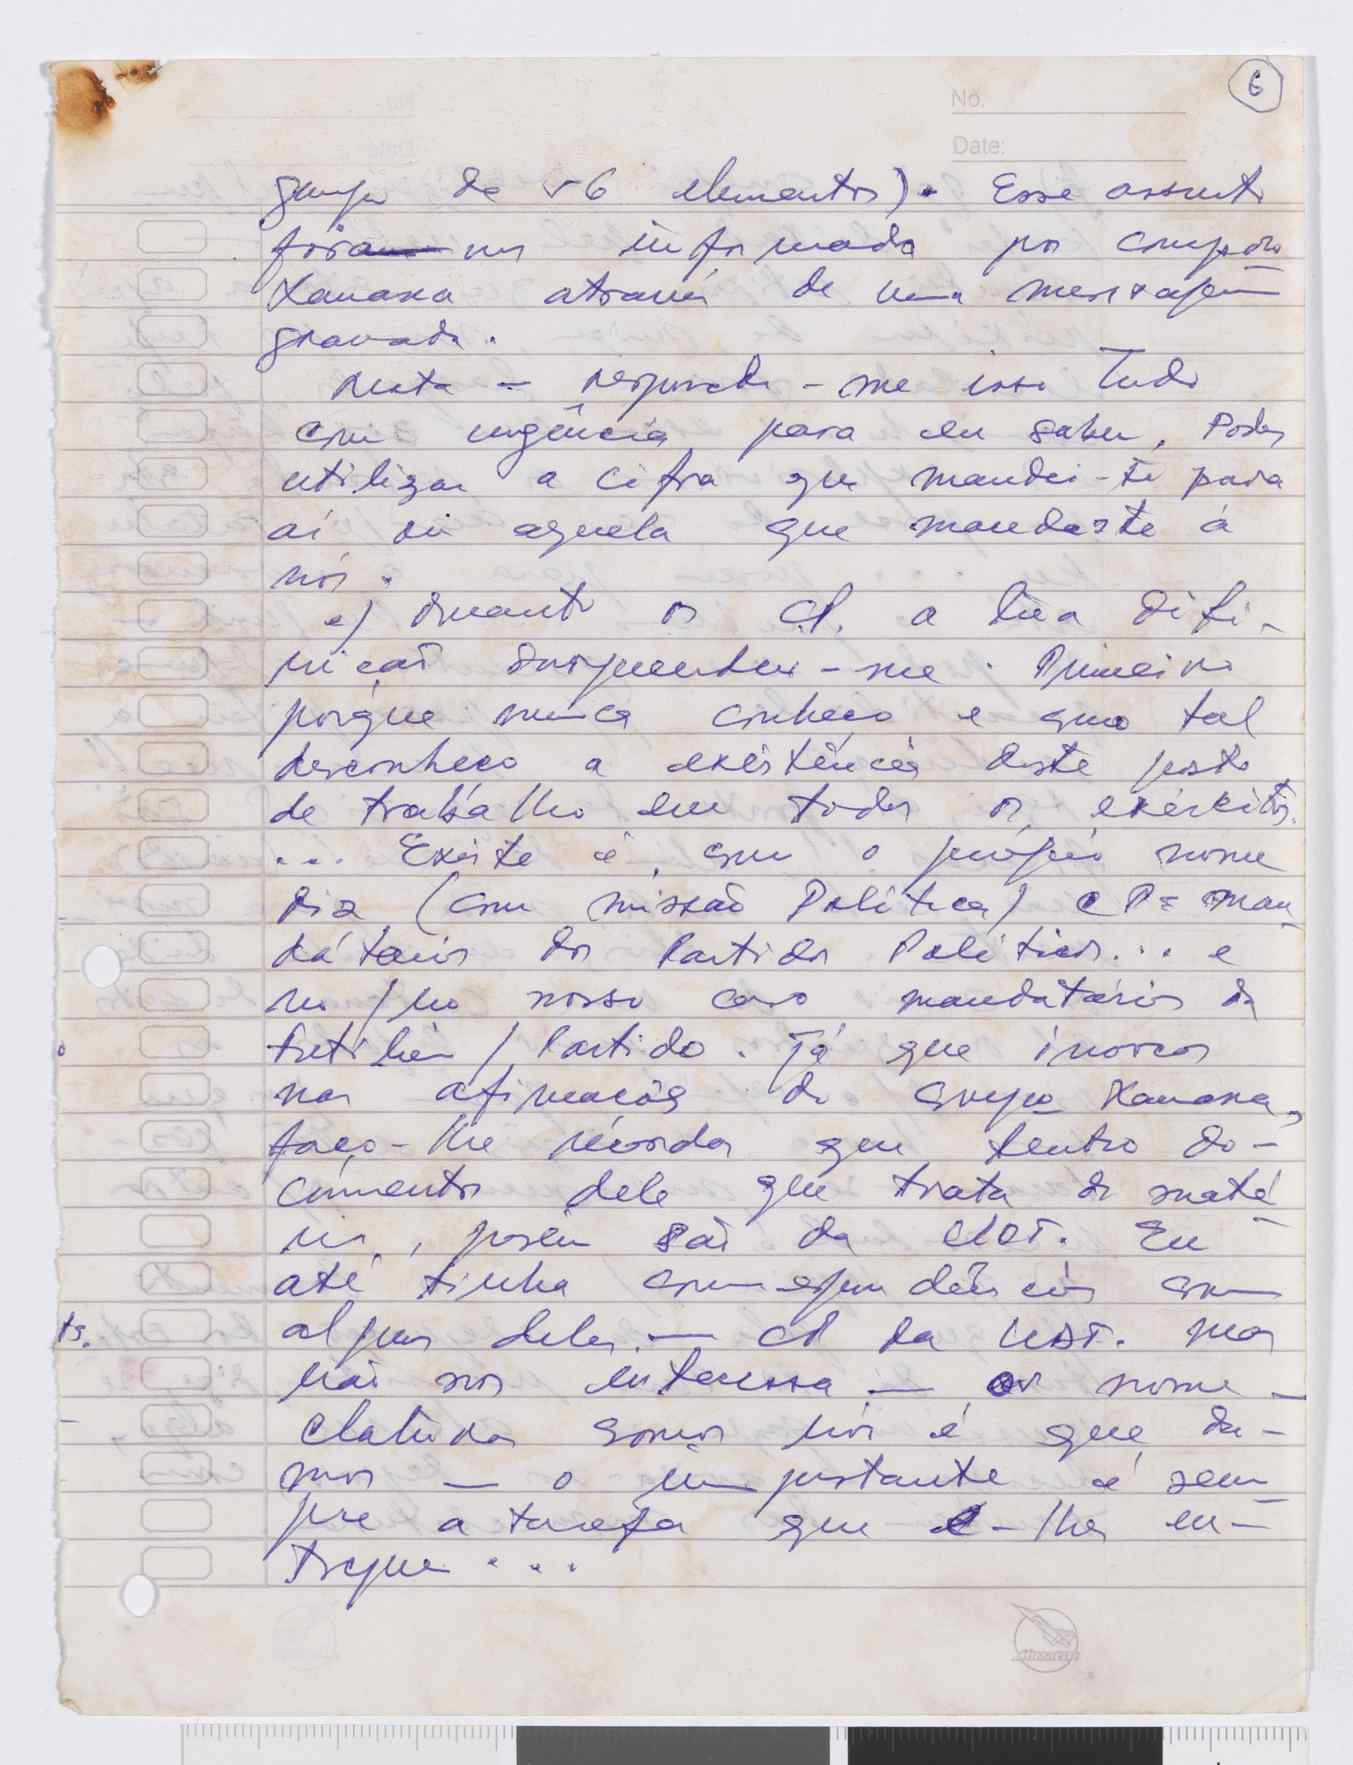 6
No.
Date:
grupo de 56 elementos). Esse assunto
fôra nos informado por compo do
Xanana através de uma mensagem
gravada.
Nesta — responda-me isso tudo
com urgência para eu saber. Podes
utilizar a cifra que mandei-te para
aí ou aquela que mandaste a
nós.
e) Quanto os C.P. a tua difi-
nição surpreendeu-me. Primeiro
porque nunca conheço e como tal
desconheço a existência deste posto
de trabalho em todos os exércitos.
... Existe é, com o próprio nome
diz (com missão Política) CP= man
dátario dos Partidos Políticos... e
no/no nosso caso mandatários da
Fretilin/Partido. Já que invocas
nas afirmações do compo Xanana,
faço-lhe recordar que tenho do-
cumentos dele que trata de maté
ria, porém são da UDT. Eu
até tinha correspondências com
alguns deles — CP da UDT. Mas
não nos interessa — os nome-
claturas somos nós é que da-
mos — o importante é sem
pre a tarefa que se-lhes en-
tregue...
ts.